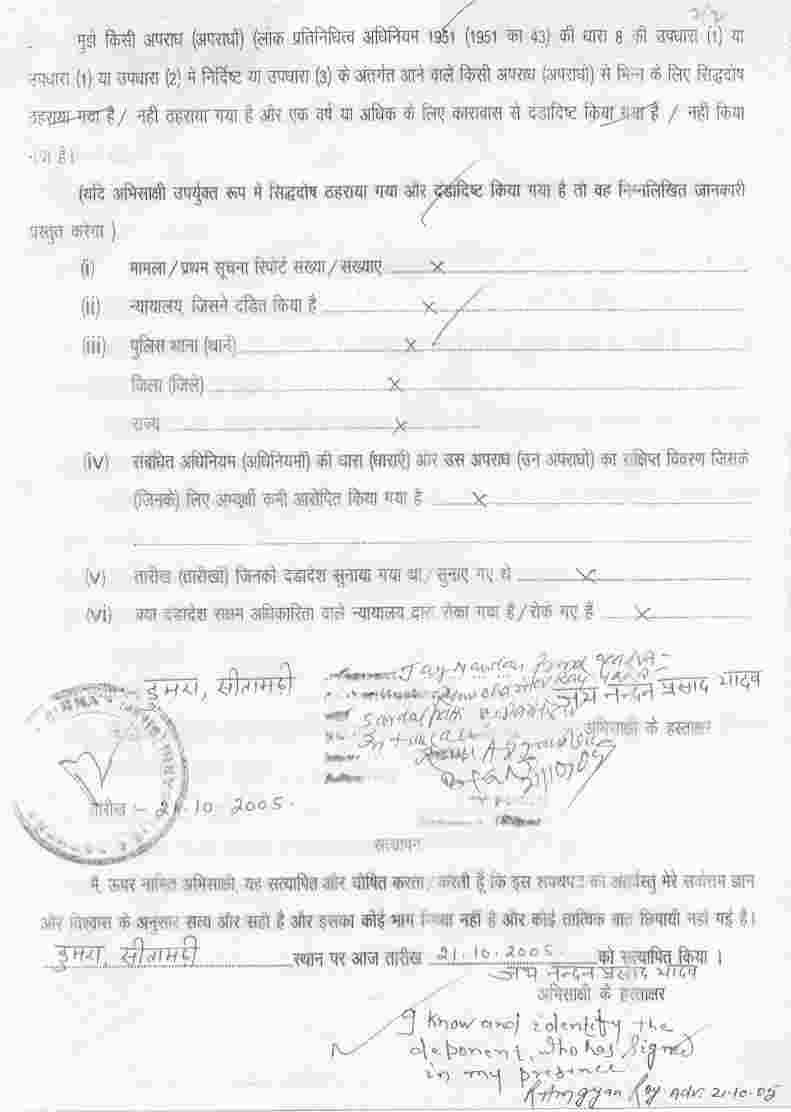 2/2
मुझे किसी अपराध (अपराधों) (लोक प्रतिनिधित्व अधिनियम 1951 (1951 का 43) की धारा 8 की उपधारा (1) या
उपधारा (1) या उपधारा (2) में निर्दिष्ट या उपधारा (3) के अंतर्गत आने वाले किसी अपराध (अपराधों) से भिन्न के लिए सिद्धदोष
ठहराया गया है / नहीं ठहराया गया है और एक वर्ष या अधिक के लिए कारावास से दंडादिष्ट किया गया है / नहीं किया
गया है।
(यदि अभिसाक्षी उपर्युक्त रूप में सिद्धदोष ठहराया गया और दंडादिष्ट किया गया है तो वह निम्नलिखित जानकारी
प्रस्तुत करेगा )
(i) मामला / प्रथम सूचना रिपोर्ट संख्या / संख्याएं x
(ii) न्यायालय, जिसने दंडित किया है x
(iii) पुलिस थाना (थाने) x
जिला (जिले) x
राज्य x
(iv) संबंधित अधिनियम (अधिनियमों) की धारा (धाराएं) और उस अपराध (उन अपराधों) का संक्षिप्त विवरण जिसके
(जिनके) लिए अभ्यर्थी कभी आरोपित किया गया है x
(v) तारीख (तारीखों) जिनको दंडादेश सुनाया गया था / सुनाए गए थे x
(vi) क्या दंडादेश सक्षम अधिकारिता वाले न्यायालय द्वारा रोका गया है / रोके गए हैं x
डुमरा, सीतामढी
Jay Nandan Prasad Yadav
जय नन्दन प्रसाद यादव
अभिसाक्षी के हस्ताक्षर
तारीख :- 21.10.2005.
सत्यापन
मैं, ऊपर नामित अभिसाक्षी, यह सत्यापित और घोषित करता / करती हूँ कि इस शपथपत्र की अंतर्वस्तु मेरे सर्वोत्तम ज्ञान
और विश्वास के अनुसार सत्य और सही है और इसका कोई भाग मिथ्या नहीं है और कोई तात्विक बात छिपायी नहीं गई है।
डुमरा, सीतामढी स्थान पर आज तारीख 21.10.2005. को सत्यापित किया ।
जय नन्दन प्रसाद यादव
अभिसाक्षी के हस्ताक्षर
I know and identify the
deponent, who has signed
in my presence
Roy Adv. 21.10.05